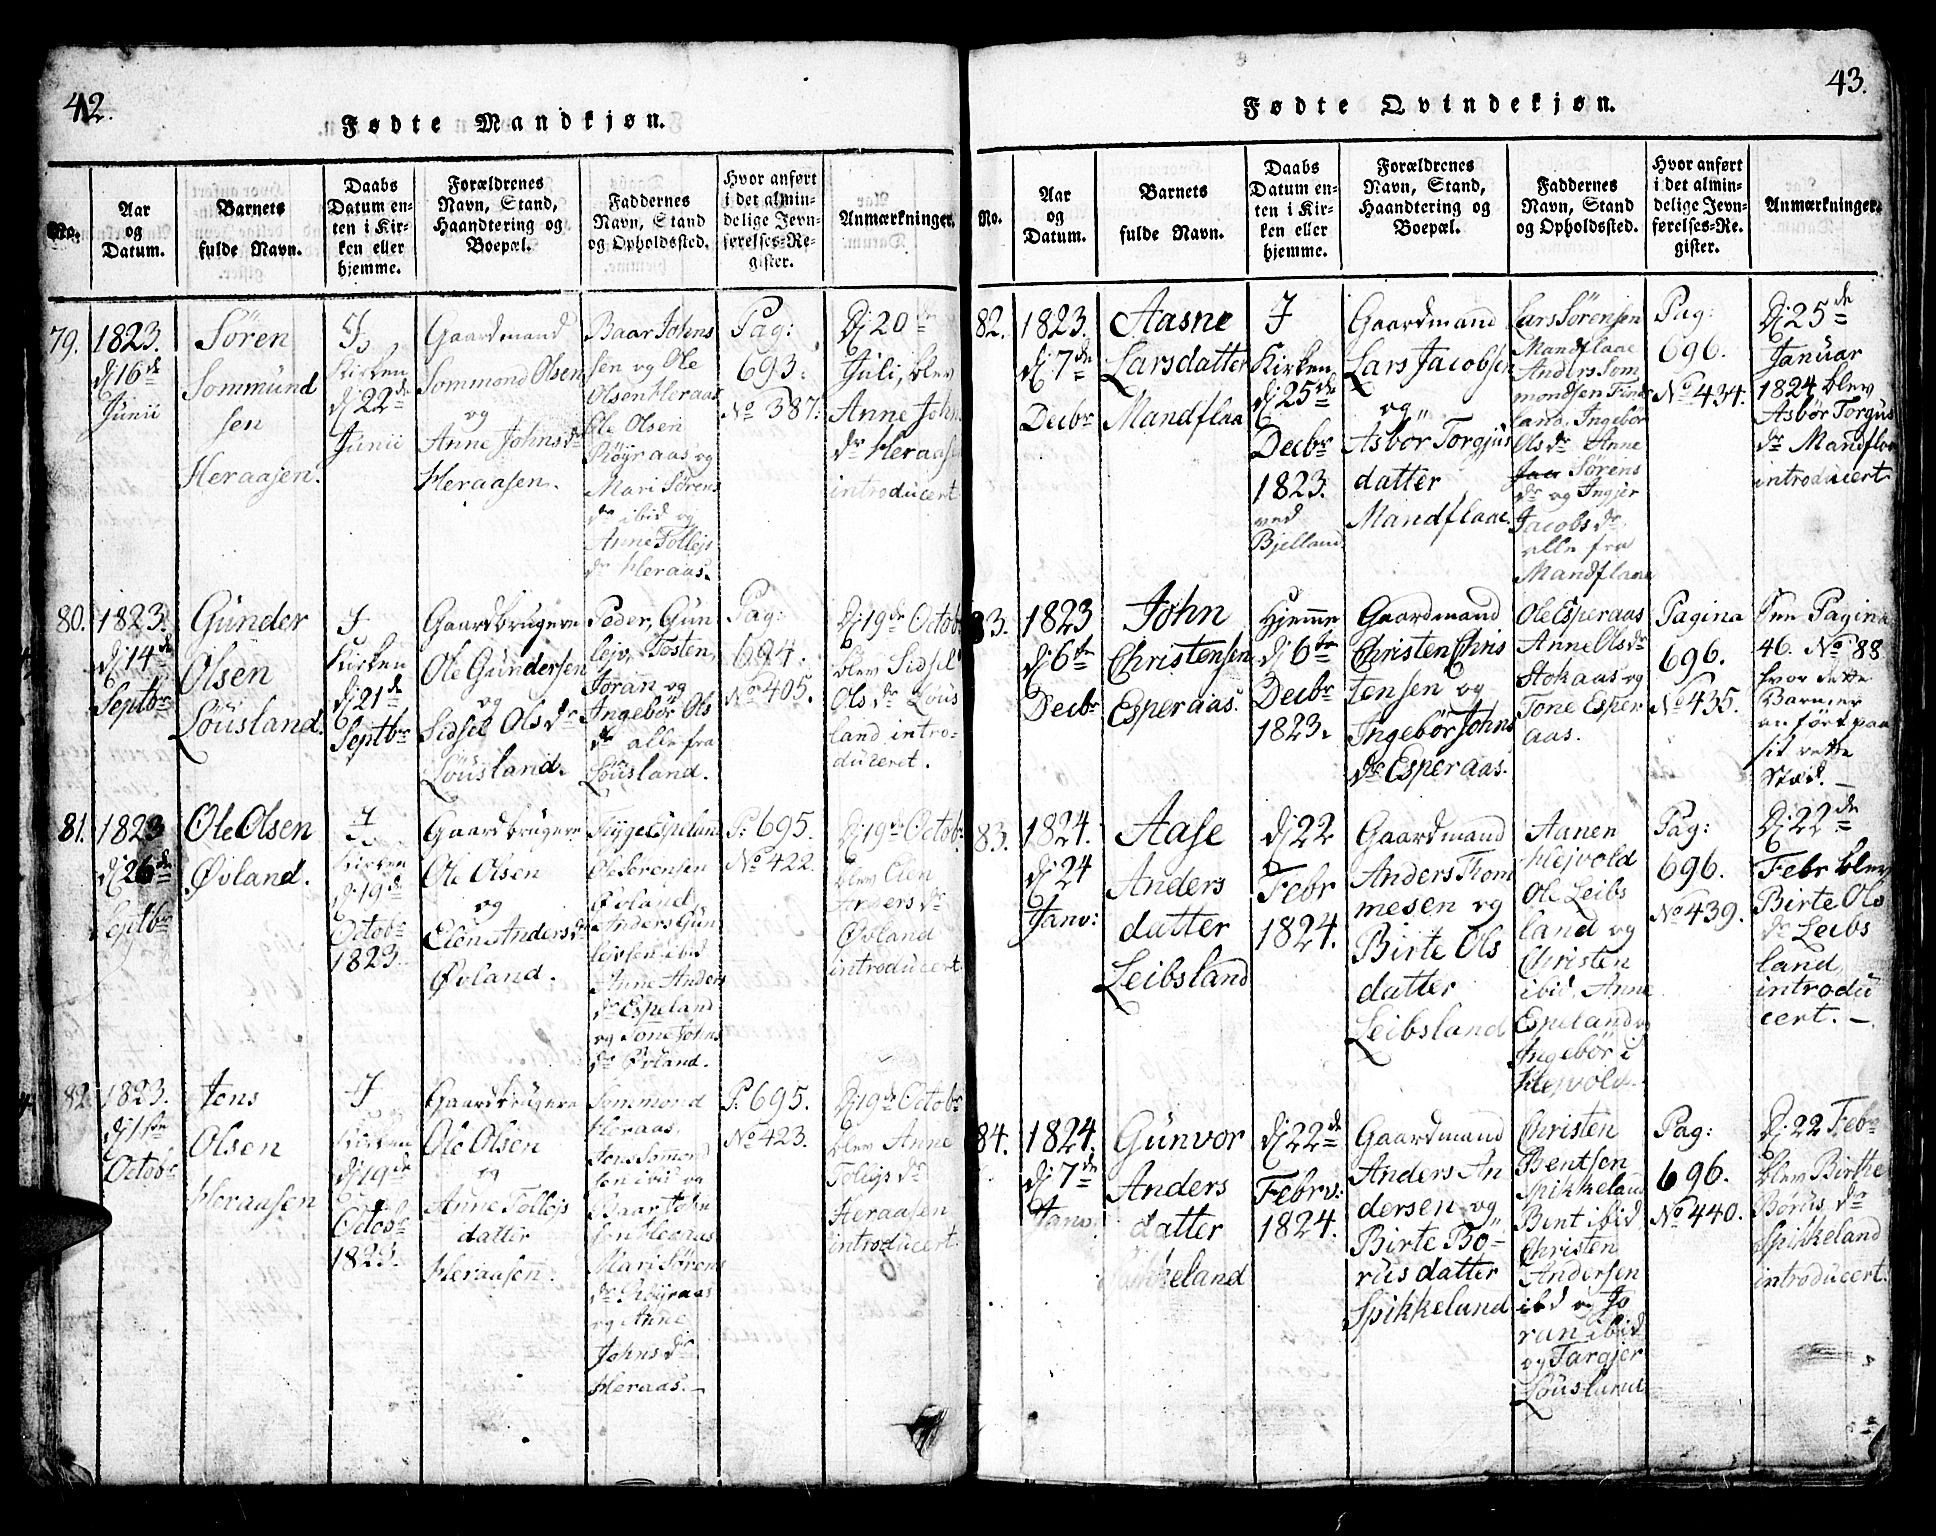 42.
Fødte Mandkjøn.
No.
Aar
og
Datum.
Barnets
fulde Navn.
Daabs
Datum en-
ten i Kir-
ken eller
hjemme.
Forældrenes
Navn, Stand,
Haandtering og
Boepæl.
Faddernes
Navn, Stand
og Opholdssted.
Hvor anført
i det almin-
delige Jevn-
førelses-Re-
gister.
Anmærkninger.
79.
1823.
Dj 16de
Junii
Sören
Sommund
sen
Heraasen.
I
Kirken
Dj 22de
Junii
Gaardmand
Sommond Olsen
og
Anne Johnsdr
Heraasen.
Baar Johns
sen og Ole
Olsen Heraas
Ole Olsen
Röyraas og
Mari Sörens
dr ibid og
Anne Tollejs
dr Heraas.
Pag:
693.
No 387.
Dj 20de
Juli, blev
Anne John
dr Heraasen
introducert
80.
1823.
Dj 14de
Septbr
Gunder
Olsen
Löusland.
I
Kirken
Dj 21de
Septbr
Gaardbrugere
Ole Gundersen
og
Sidsel Olsdr
Löusland.
Peder, Gun
lejv, Tosten,
Joran og
Ingebör Ols
dr alle fra
Löusland.
Pag:
694.
No 405.
Dj 19de Octobr
blev Sidsel
Ols dr Löus
land intro-
duceret.
81.
1823
Dj 26de
Septbr
Ole Olsen
Øvland.
I
Kirken
Dj 19de
Octobr
1823.
Gaardbrugere
Ole Olsen
og
Elen Andersdr
Øvland.
Espeland
Ole Sörensen
Øvland,
Anders Gun
lejvsen ibid
Anne Anders
dr Espeland
og Tone Johns
dr Øvland.
P: 695.
No 422.
Dj 19de Octobr
blev Elen
Anders dr
Øvland
introducert
82.
1823.
Dj 1ste
Octobr
Jens
Olsen
Heraasen
I
Kirken
Dj 19de
Octobr
1823.
Gaardbrugere
Ole Olsen
og
Anne Tollejs
datter
Heraasen.
Sommond
Heraas,
Jens Somond
sen ibid og
Baar John
sen Heraas
Mari Sörens
dr Röyraas
og Anne
Johns dr
Heraas.
P: 695.
No 423.
Dj 19de Octobr
blev Anne
Tollejs dr
Heraasen
introducert
43.
Fødte Qvindekjøn.
No.
Aar
og
Datum.
Barnets
fulde Navn.
Daabs
Datum en-
ten i Kir-
ken eller
hjemme.
Forældrenes
Navn, Stand,
Haandtering og
Boepæl.
Faddernes
Navn, Stand
og Opholdssted.
Hvor anført
i det almin-
delige Jevn-
førelses-Re-
gister.
Anmærkninger.
82.
1823.
Dj 7de
Decbr
Aasne
Larsdatter
Mandflaa
I
Kirken
Dj 25de
Decbr
1823.
ved
Bjelland
Gaardmand
Lars Jacobsen
og
Asbör Torgjus
datter
Mandflaae.
Lars Sörensen
Mandflaae
Anders Som
mondsen Find
land, Ingebör
Olsdr Anne
Sörens
dr og Ingjer
Jacobs dr
alle fra
Mandflaae
Pag:
696.
No 434.
Dj 25de
Januar
1824 blev
Asbör Torgus
dr Mandflaa
introducert
83.
1823
Dj 6te
Decbr
John
Christensen
Esperaas.
Hjemme
Dj 6te
Decbr
1823.
Gaardmand
Christen Chris
tensen og
Ingebör Johns
dr Esperaas.
Ole Esperaas
Anne Olsdr
Stokaas og
Tone Esper
aas.
Pagina
696.
No 435.
See Pagina
46. No 88
hvor dette
Barn er
anfört paa
sit rette
Stæd.
83.
1824.
Dj 24
Janv:
Aase
Anders
datter
Leibsland
Dj 22
Febr
1824.
Gaardmand
Anders Thom
mesen og
Birte Ols
datter
Leibsland
Aanen
Hejvold
Ole Leibs
land og
Christen
ibid, Anne
Espeland og
Ingebör i
Hejvold.
Pag:
696.
No 439.
Dj 22de
Febr blev
Birte Ols
dr Leibs
land,
introdu
cert.
84.
1824.
Dj 7de
Janv.
Gunvor
Anders
datter
Spikkeland
Dj 22de
Febrv:
1824.
Gaardmand
Anders An
dersen og
Birte Bo-
rus datter
Spikkeland
Christen
Bentsen
Spikkeland
Bent ibid
Christen
Andersen
ibd og Jo
ran ibid
og Targjer
Löusland
Pag:
696.
No 440.
Dj 22 Febr
blev Birthe
Börus dr
Spikkeland
introducert.